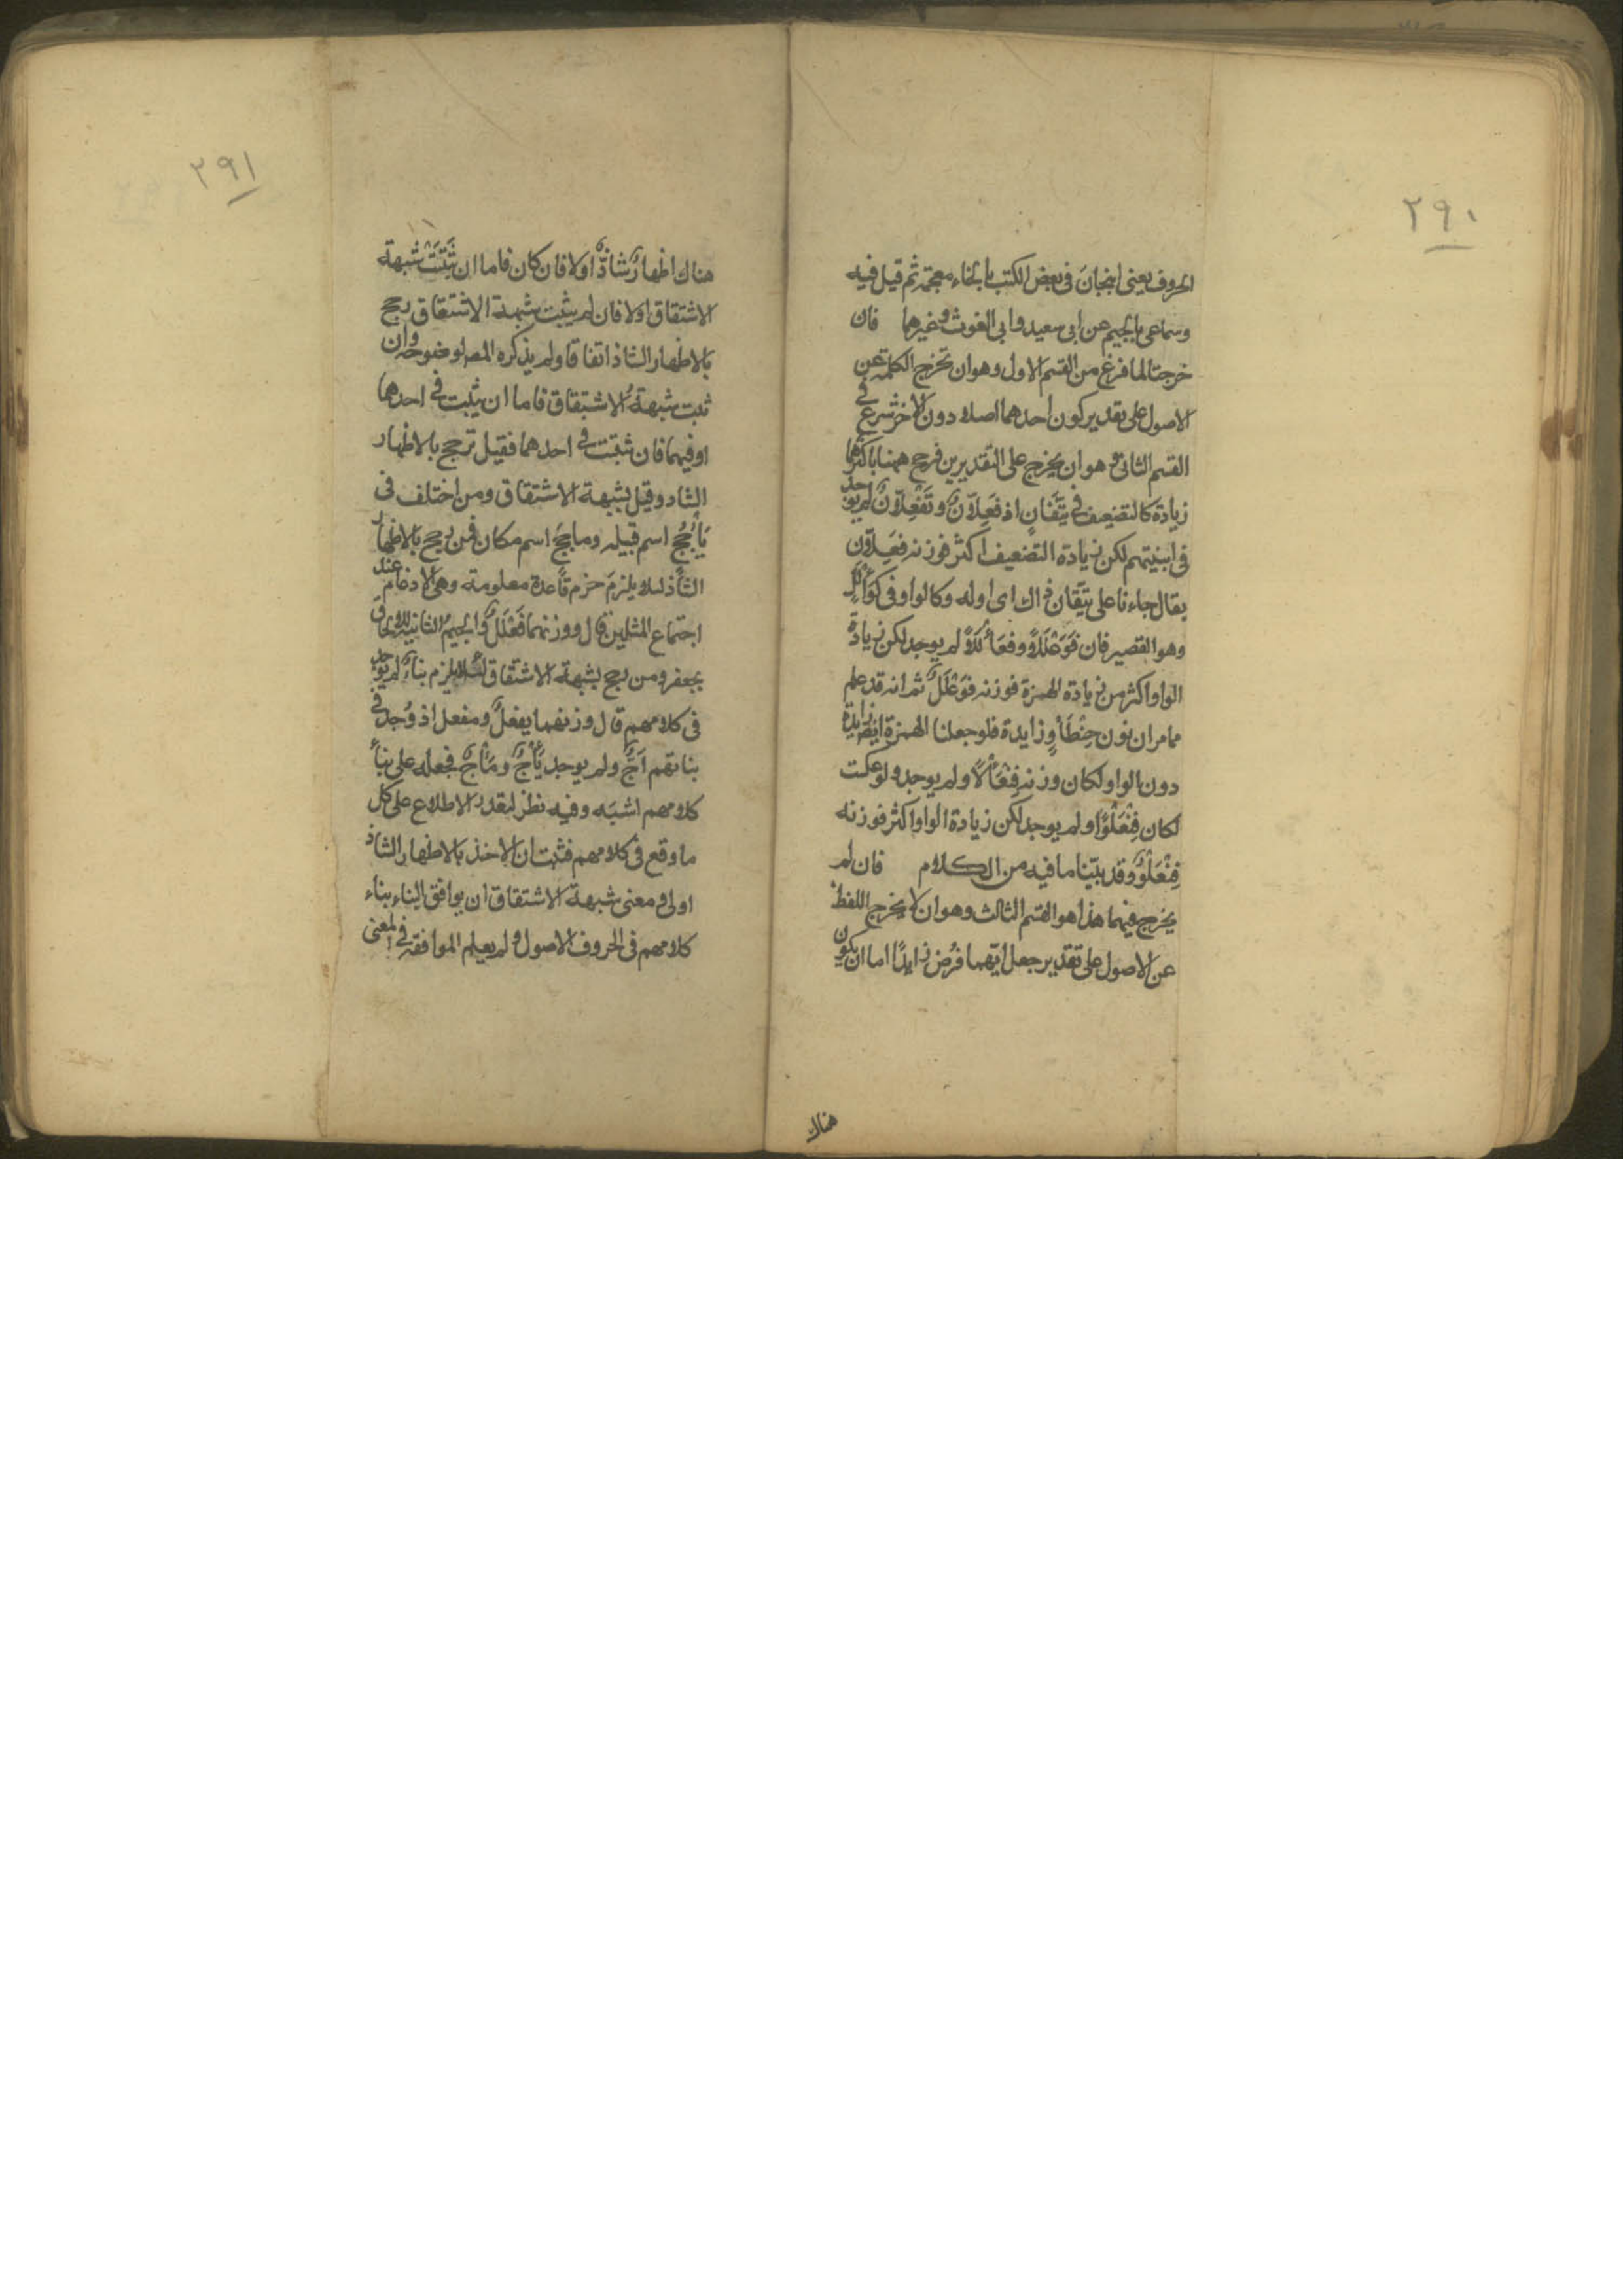 ٢٩٠
الحروف يعنى انبخان فى بعض الكتب بالخاء معجمة ثم قيل فيه
وسماعى بالجيم عن ابى سعيد وابى الغوث وغيرهما فان
خرجتا لما فرغ من القسم الاول وهو ان تخرج الكلمة عن
الاصول على تقدير كون احدهما اصلا دون الاخر شرع فى
القسم الثانى وهو ان يخرج على التقديرين فرجح ههنا باكثرهما
زيادة كالتضعيف فى تئفان اذ فعلان وتفعلان لم يوجد
فى ابنيتهم لكن زيادة التضعيف اكثر فوزنه فعلان
يقال جاءنا على تئفان ذاك اى اوله وكالواو فى كوألل
وهو القصير فان فوعللا وفعألا لم يوجد لكن زيادة
الواو اكثر من زيادة الهمزة فوزنه فوعلل ثم انه قد علم
مما مر ان نون حنطأو زايدة فلو جعلنا الهمزة ايضا زايدة
دون الواو لكان وزنه فنعألا ولم يوجد ولو عكست
لكان فنعلوا ولم يوجد لكن زيادة الواو اكثر فوزنه
فنعلو وقد بيّنا ما فيه من الكلام فان لم
يخرج فيهما هذا هو القسم الثالث وهو ان لا يخرج اللفظ
عن الاصول على تقدير جعل ايّهما فرض زايدًا اما ان يكون
هناك
٢٩١
هناك اظهار شاذّ اولا فان كان فاما ان تثبت شبهة
الاشتقاق اولا فان لم يثبت شبهة الاشتقاق رجح
بالاظهار الشاذ اتفاقا ولم يذكره المص لوضوحه وان
ثبت شبهة الاشتقاق فاما ان يثبت فى احدهما
او فيهما فان ثبتت فى احدهما فقيل ترجح بالاظهار
الشاذ وقيل بشبهة الاشتقاق ومن اختلف فى
يأجج اسم قبيله ومأجج اسم مكان فمن رجح بالاظهار
الشاذ لئلا يلزم خرم قاعدة معلومة وهى الادغام عند
اجتماع المثلين قال وزنهما فعلل والجيم الثانية للالحاق
بجعفر ومن رجح بشبهة الاشتقاق لئلا يلزم بناء لم يوجد
فى كلامهم قال وزنهما يفعل ومفعل اذ وُجد فى
بنائهم اجّ ولم يوجد يأج ومأج فجعله على بناء
كلامهم اشبه وفيه نظر لتعذر الاطلاع على كل
ما وقع فى كلامهم فثبت ان الاخذ بالاظهار الشاذ
اولى ومعنى شبهة الاشتقاق ان يوافق البناء بناء
كلامهم فى الحروف الاصول ولم يعلم الموافقه فى المعنى